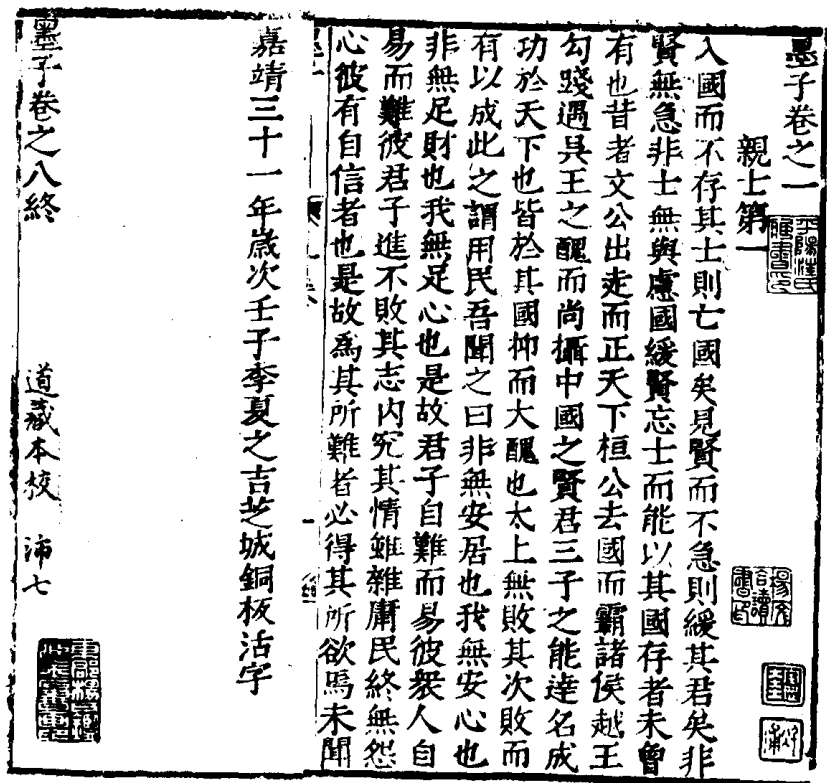 墨子卷之一
親士第一
入國而不存其士則亡國矣見賢而不急則緩其君矣非
賢無急非士無與慮國緩賢忘士而能以其國存者未曾
有也昔者文公出走而正天下桓公去國而霸諸侯越王
勾踐遇吳王之醜而尚攝中國之賢君三子之能達名成
功於天下也皆於其國抑而大醜也太上無敗其次敗而
有以成此之謂用民吾聞之曰非無安居也我無安心也
非無足財也我無足心也是故君子自難而易彼衆人自
易而難彼君子進不敗其志内究其情雖雜庸民終無怨
心彼有自信者也是故為其所難者必得其所欲焉未聞
嘉靖三十一年歲次壬子季夏之吉芝城銅板活字
墨子卷之八終
道藏本校 沛七